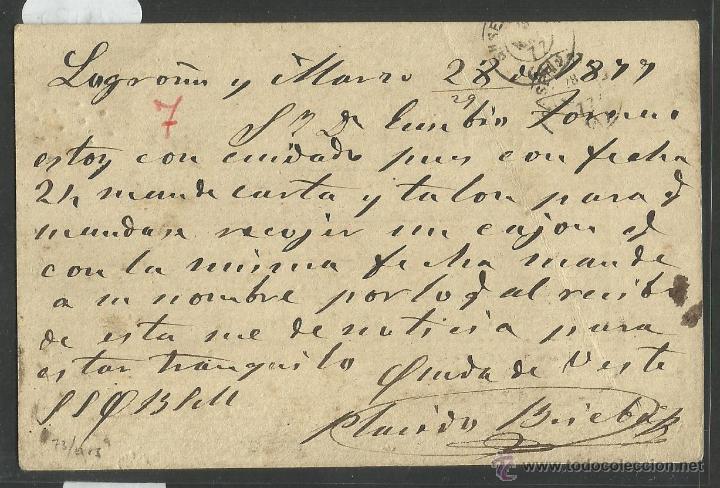 Logroño y Marzo 28 de 1877
29
7
Sr Dn Eusebio
estoy con cuidado pues con fecha
24 mande carta y talon para q
mandase recojer un cajon q
con la misma fecha mande
a su nombre por lo q al recibo
de esta me de noticia para
estar tranquilo
Queda de Vste
S S Q B S M
Placido Brieba
www.todocoleccion.net